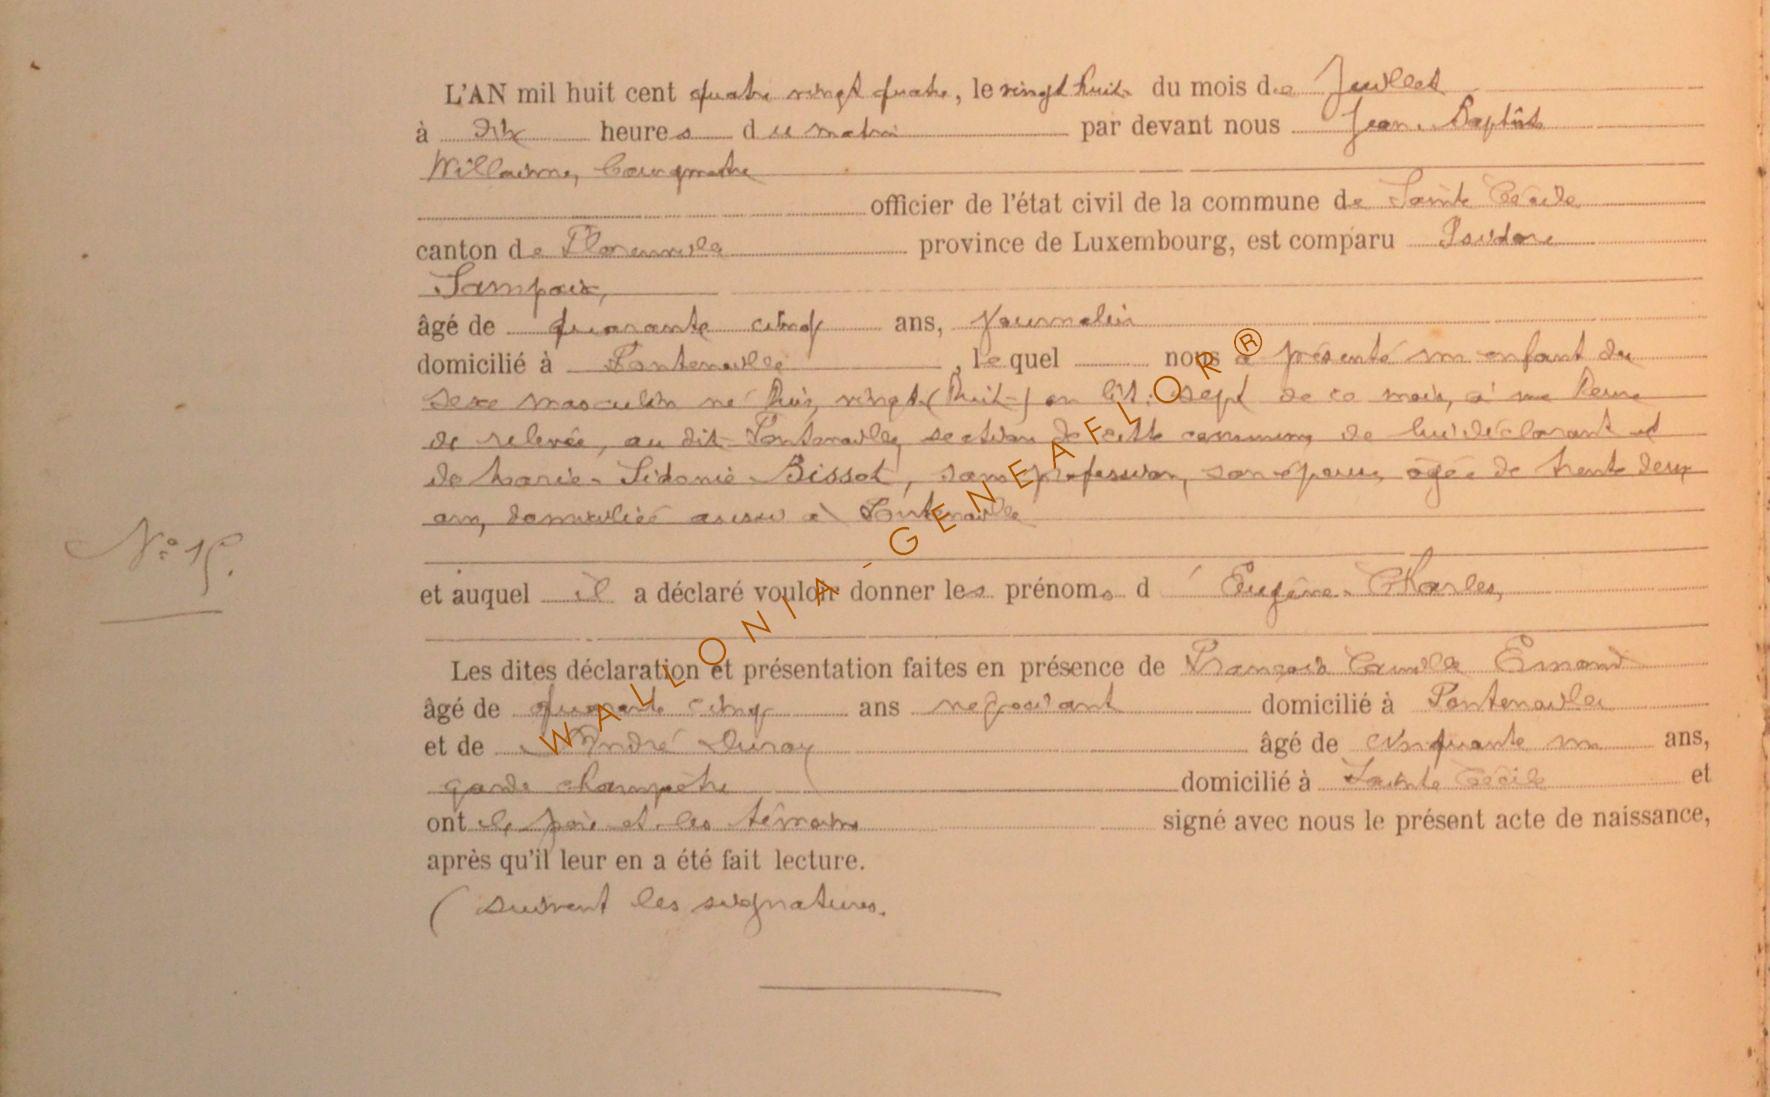 L'AN mil huit cent quatre vingt quatre, le vingt huit du mois de Juillet
à dix heures du matin par devant nous Jean-Baptiste
Willaime, bourgmestre
officier de l'état civil de la commune de Sainte Cécile
canton de Florenville province de Luxembourg, est comparu Isidore
Sampaix,
âgé de quarante cinq ans, journalier
domicilié à Fontenoille, lequel nous a présenté un enfant du
sexe masculin né hier, vingt (huit) on lit: sept de ce mois, à une heure
de relevée, au dit Fontenoille, section de cette commune de lui déclarant et
de Marie-Sidonie Bissot, sans profession, son épouse, agée de trente deux
ans, domiciliée aussi à Fontenoille
N° 15.
et auquel il a déclaré vouloir donner les prénoms d' Eugène-Charles,
Les dites déclaration et présentation faites en présence de François Camille Emond
âgé de quarante cinq ans négociant domicilié à Fontenoille
et de André Duroy âgé de cinquante un ans,
garde champêtre domicilié à Sainte Cécile et
ont le père et les témoins signé avec nous le présent acte de naissance,
après qu'il leur en a été fait lecture.
(suivent les signatures.
WALLONIA-GENEAFLOR®